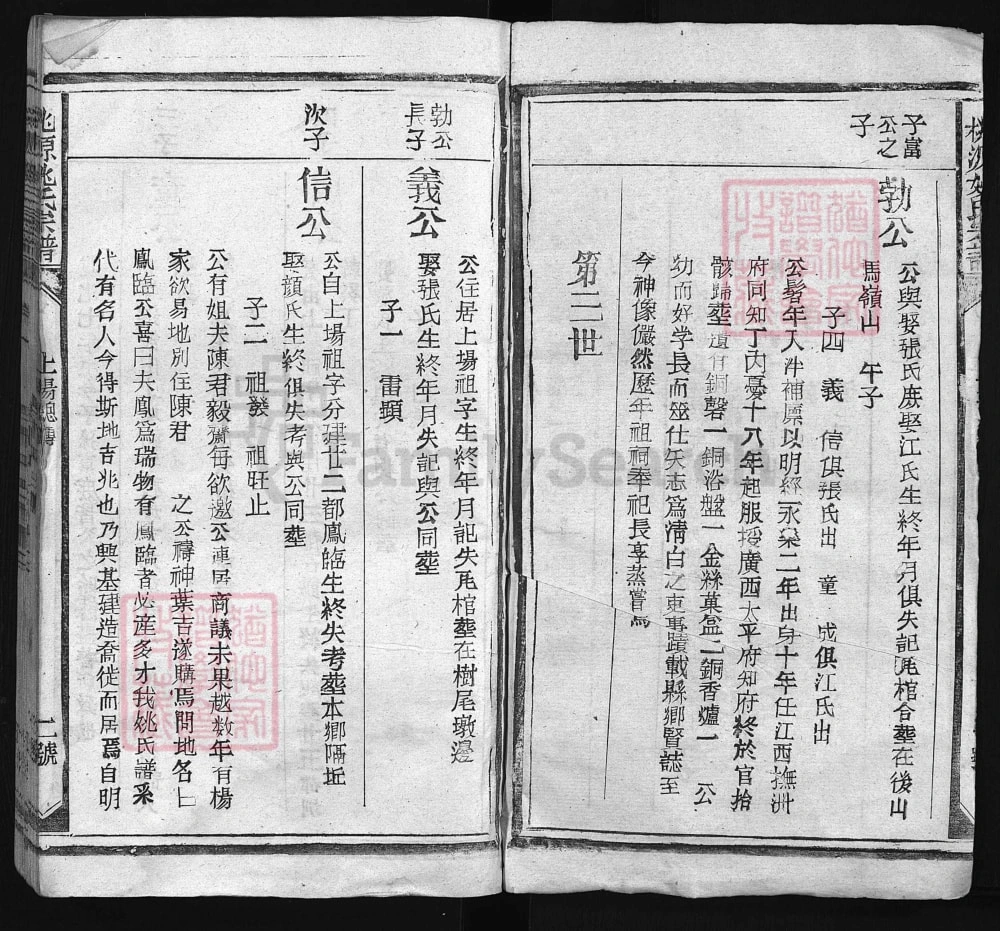 子富
公之
子
勃公
公與娶張氏庶娶江氏生終年月俱失記瓦棺合塟在後山
馬嶺山　午子
子四　義　信俱張氏出　童　成俱江氏出
公髫年入泮補廪以明經永樂二年出身十年任江西撫洲
府同知丁內憂十八年起服授廣西太平府知府終於官拾
骸歸塟遺有銅磬一銅浴盤一金絲菓盒二銅香爐一　公
幼而好学長而筮仕矢志爲淸白之吏事蹟載縣鄉賢誌至
今神像儼然歷年祖祠奉祀長享蒸嘗焉
第二世
勃公
長子
義公
公住居上場祖字生終年月記失瓦棺塟在樹尾墩邊
娶張氏生終年月失記與公同塟
子一　雷顕
次子
信公
公自上場祖字分建廿二都鳳臨生終失考塟本鄉隔坵
娶顔氏生終俱失考與公同塟
子二　祖發　祖旺止
公有姐夫陳君毅彌每欲邀公連居商議未果越数年有楊
家欲易地別住陳君　之公禱神葉吉遂購焉問地名曰
鳳臨公喜曰夫鳳爲瑞物有鳳臨者必産多才我姚氏譜系
代有名人今得斯地吉兆也乃興基建造喬徙而居焉自明
桃源姚氏宗譜
上場總譜
二號
FamilySearch